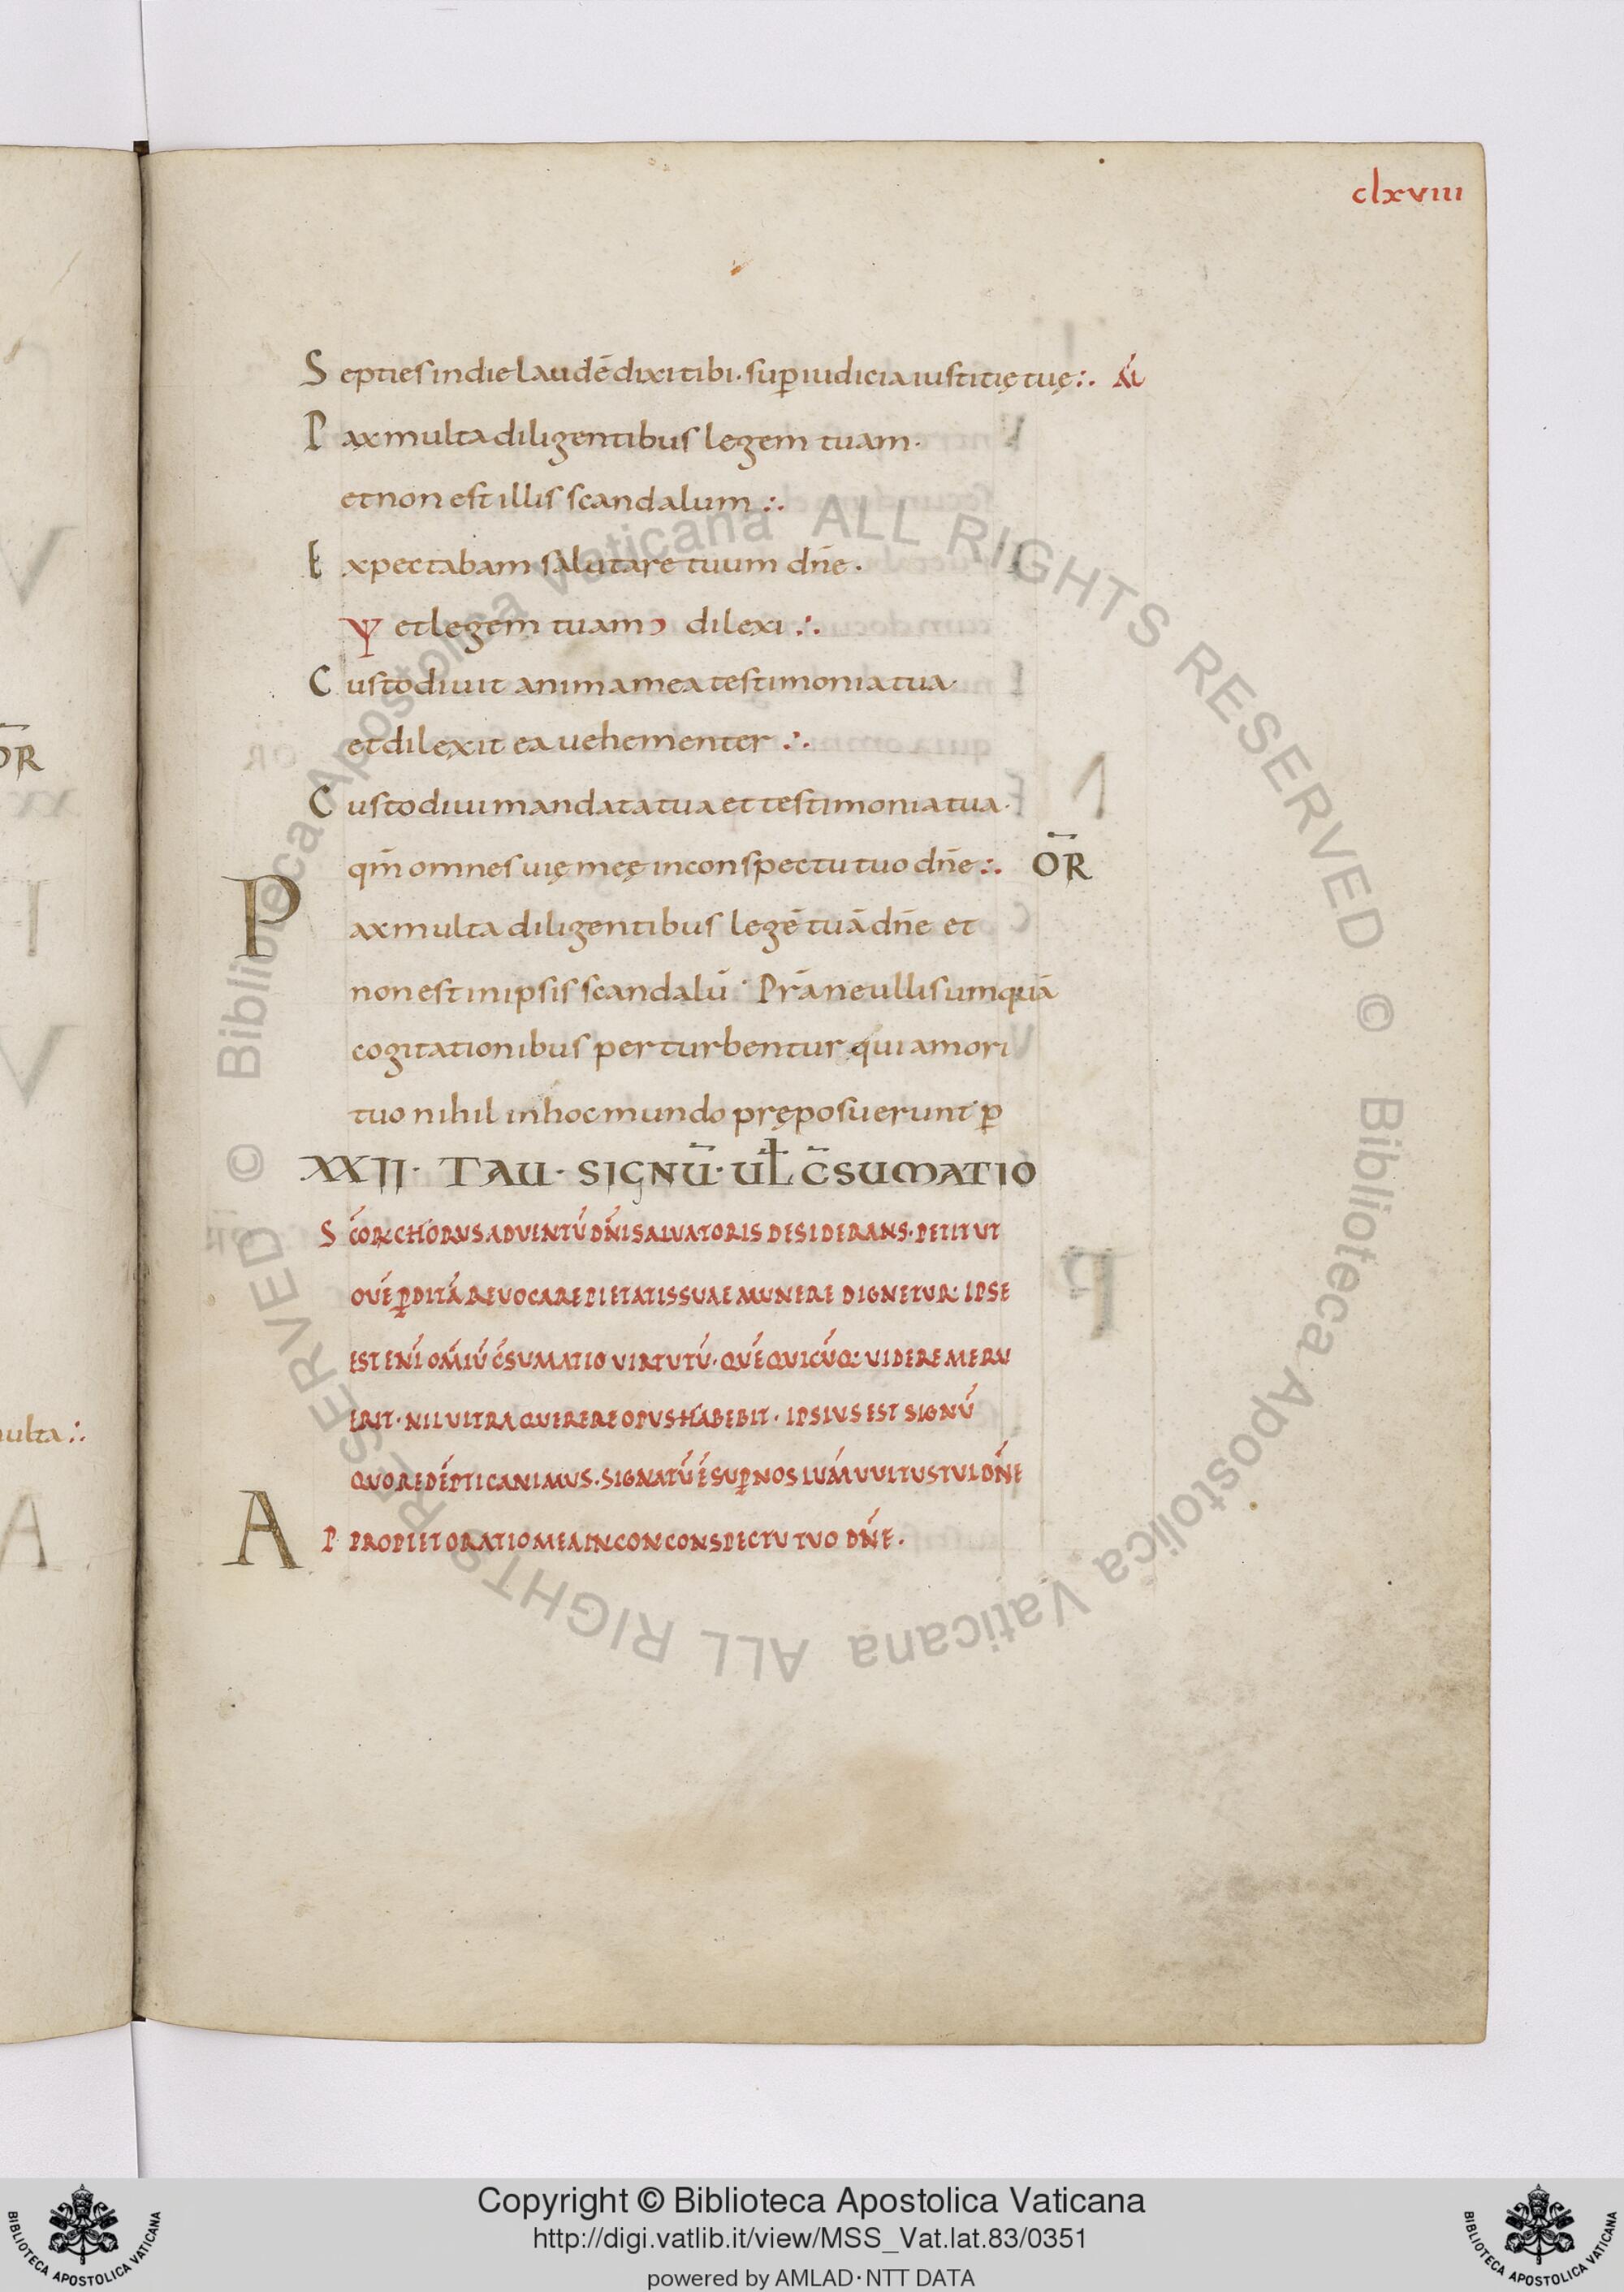 clxviii
Septies in die laudē dixi tibi· sup̄ iudicia iustitię tuę:·
Pax multa diligentibus legem tuam·
et non est illis scandalum :·
Expectabam salutare tuum dn̄e·
et legem tuam dilexi :·
Custodiuit anima mea testimonia tua·
et dilexit ea uehementer :·
Custodiui mandata tua et testimonia tua·
qm̄ omnes uię meę in conspectu tuo dn̄e :· ŌR
Pax multa diligentibus legē tuā dn̄e et
non est in ipsis scandalū· Prā ne ullis umquā
cogitationibus perturbentur qui amori
tuo nihil in hoc mundo pręposuerunt· p̄
XXII· TAU· SIGNŪ· UŁ C̄SUMATIO
SCŌR CHORUS ADVENTŪ DN̄I SALVATORIS DESIDERANS· PETIT UT
OVĒ P̄DITĀ REVOCARE PIETATIS SVAE MUNERE DIGNETVR: IPSE
EST ENĪ OM̄IŪ C̄SUMATIO VIRTUTŪ· QVĒ QVICŪQ: VIDERE MERV
ERIT· NIL ULTRA QUERERE OPVS HABEBIT· IPSIVS EST SIGNŪ
QUO REDĒPTI CANIMUS· SIGNATŪ Ē SUP̄ NOS LUM̄ VULTUS TUI DN̄E
A PPROPIET ORATIO MEA IN CONCONSPECTU TVO DN̄E·
ulta :·
ŌR
A
Copyright © Biblioteca Apostolica Vaticana
http://digi.vatlib.it/view/MSS_Vat.lat.83/0351
powered by AMLAD·NTT DATA
BIBLIOTECA APOSTOLICA VATICANA
BIBLIOTECA APOSTOLICA VATICANA
© Biblioteca Apostolica Vaticana ALL RIGHTS RESERVED
© Biblioteca Apostolica Vaticana ALL RIGHTS RESERVED